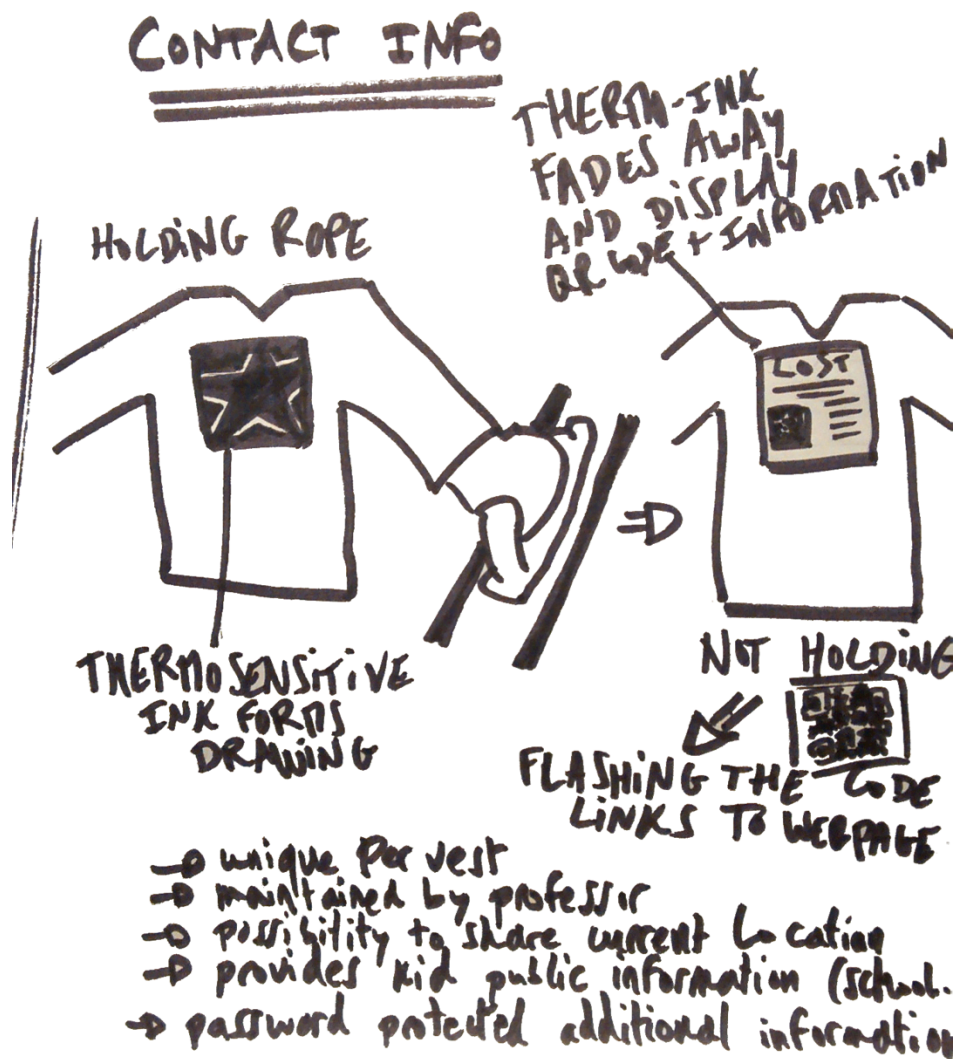 CONTACT INFO
THERM-INK
FADES AWAY
AND DISPLAY
QR CODE + INFORMATION
HOLDING ROPE
LOST
THERMOSENSITIVE
INK FORMS
DRAWING
NOT HOLDING
FLASHING THE CODE
LINKS TO WEBPAGE
→ unique per vest
→ maintained by professor
→ possibility to share current location
→ provides kid public information (school.
→ password protected additional information